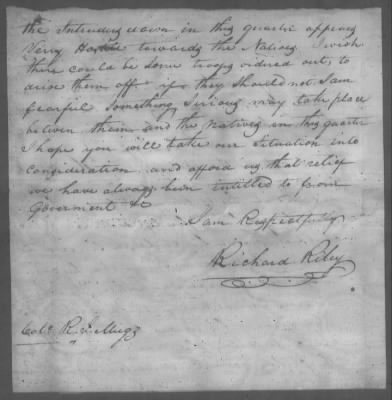 the Intruders down in this quarter appears
Verry Hostile towards the Natives I wish
there could be some troops ordred out, to
drive them off if they should not I am
fearful Something Serious may take place
between them and the natives in this quarter
I hope you will take our Situation into
Consideration and afford us that relief
we have always been intitled to from
Goverment &c
I am Respectfully
Richard Riley
Colo. R. J. Meigs